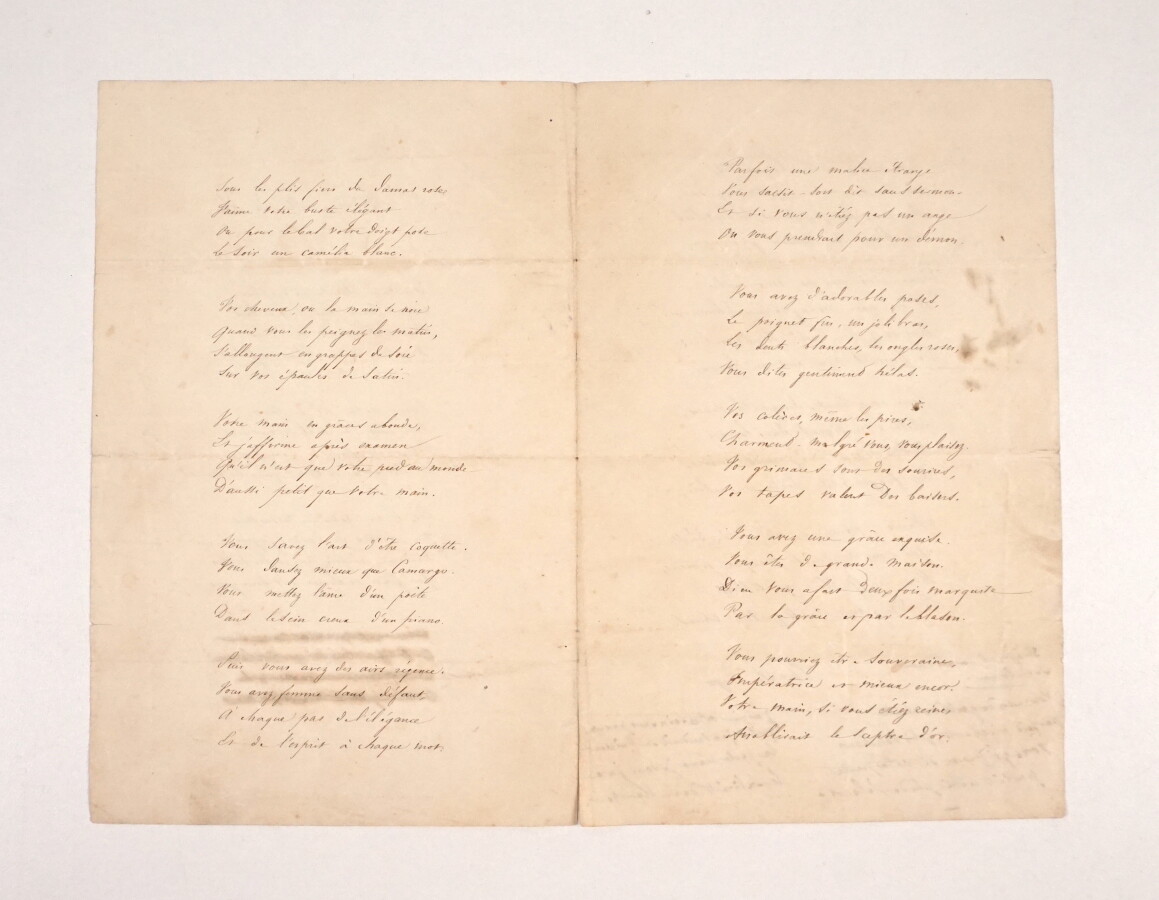 Sous les plis fins du damas rose,
J'aime votre buste élégant
Ou pour le bal votre doigt pose
Le soir un camélia blanc.
Vos cheveux, ou la main se noie
Quand vous les peignez les matins,
S'allongent en grappes de soie
Sur vos épaules de satin.
Votre main en grâces abonde,
Et j'affirme après examen
Qu'il n'est que votre pied au monde
D'aussi petit que votre main.
Vous savez l'art d'être coquette.
Vous dansez mieux que Camargo.
Vous mettez l'âme d'un poète
Dans le sein creux d'un piano
Puis vous avez des airs régence.
Vous avez femme sans défaut,
A chaque pas de l'élégance
Et de l'esprit à chaque mot.
Parfois une malice étrange
Vous saisit
Et si vous n'étiez pas un ange
On vous prendrait pour un démon.
Vous avez d'adorables poses,
Le poignet fin, un joli bras,
Les dents blanches, les ongles roses,
Vous dites gentiment hélas.
Vos colères, même les pires,
Charment. malgré vous, vous plaisez.
Vos grimaces sont des sourires,
Vos tapes valent des baisers.
Vous avez une grâce exquise.
Vous êtes de grande maison.
Dieu vous a fait deux fois marquise
Par la grâce et par le blason.
Vous pourriez être souveraine,
Impératrice et mieux encor.
Votre main, si vous étiez reine,
Anoblirait le sceptre d'or.